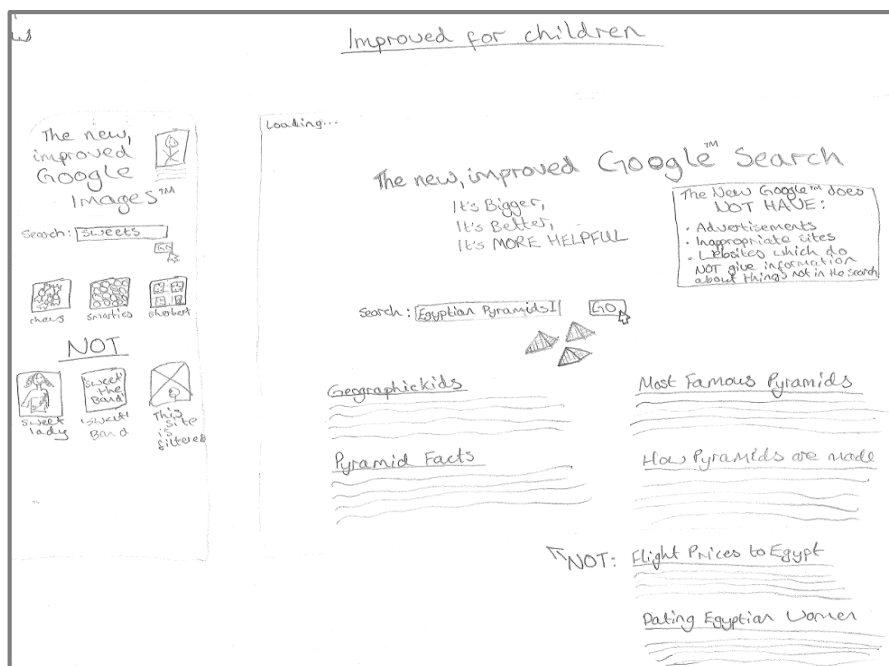 Improved for children
The new,
improved
Google
Images™
Search: Sweets
GO
chews
smarties
sherbert
NOT
sweet
lady
Sweet
the
Band
'sweet'
Band
This
site
is
filtered
Loading...
The new, improved Google™ Search
It's Bigger,
It's Better,
It's MORE HELPFUL
The New Google™ does
NOT HAVE:
• Advertisements
• Inappropriate sites
• Websites which do
NOT give information
about things not in the search
Search: Egyptian Pyramids
GO
Geographickids
Pyramid Facts
Most Famous Pyramids
How Pyramids are made
NOT: Flight Prices to Egypt
Dating Egyptian Women